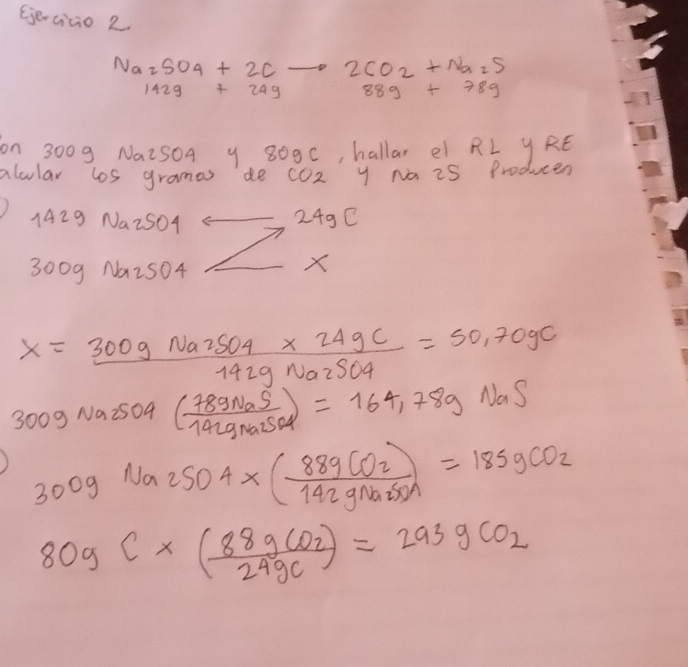 Ejercicio 2.
Na2SO4 + 2C → 2CO2 + Na2S
142g + 24g 88g + 78g
on 300g Na2SO4 y 80g C, hallar el RL y RE
alcular los gramos de CO2 y Na2S Producen
) 142g Na2SO4 ← 24g C
300g Na2SO4 X
X = 300g Na2SO4 x 24g C / 142g Na2SO4 = 50,70g C
300g Na2SO4 (78g NaS / 142g Na2SO4) = 164,78g NaS
) 300g Na2SO4 x (88g CO2 / 142g Na2SO4) = 185g CO2
80g C x (88g CO2 / 24g C) = 293 g CO2